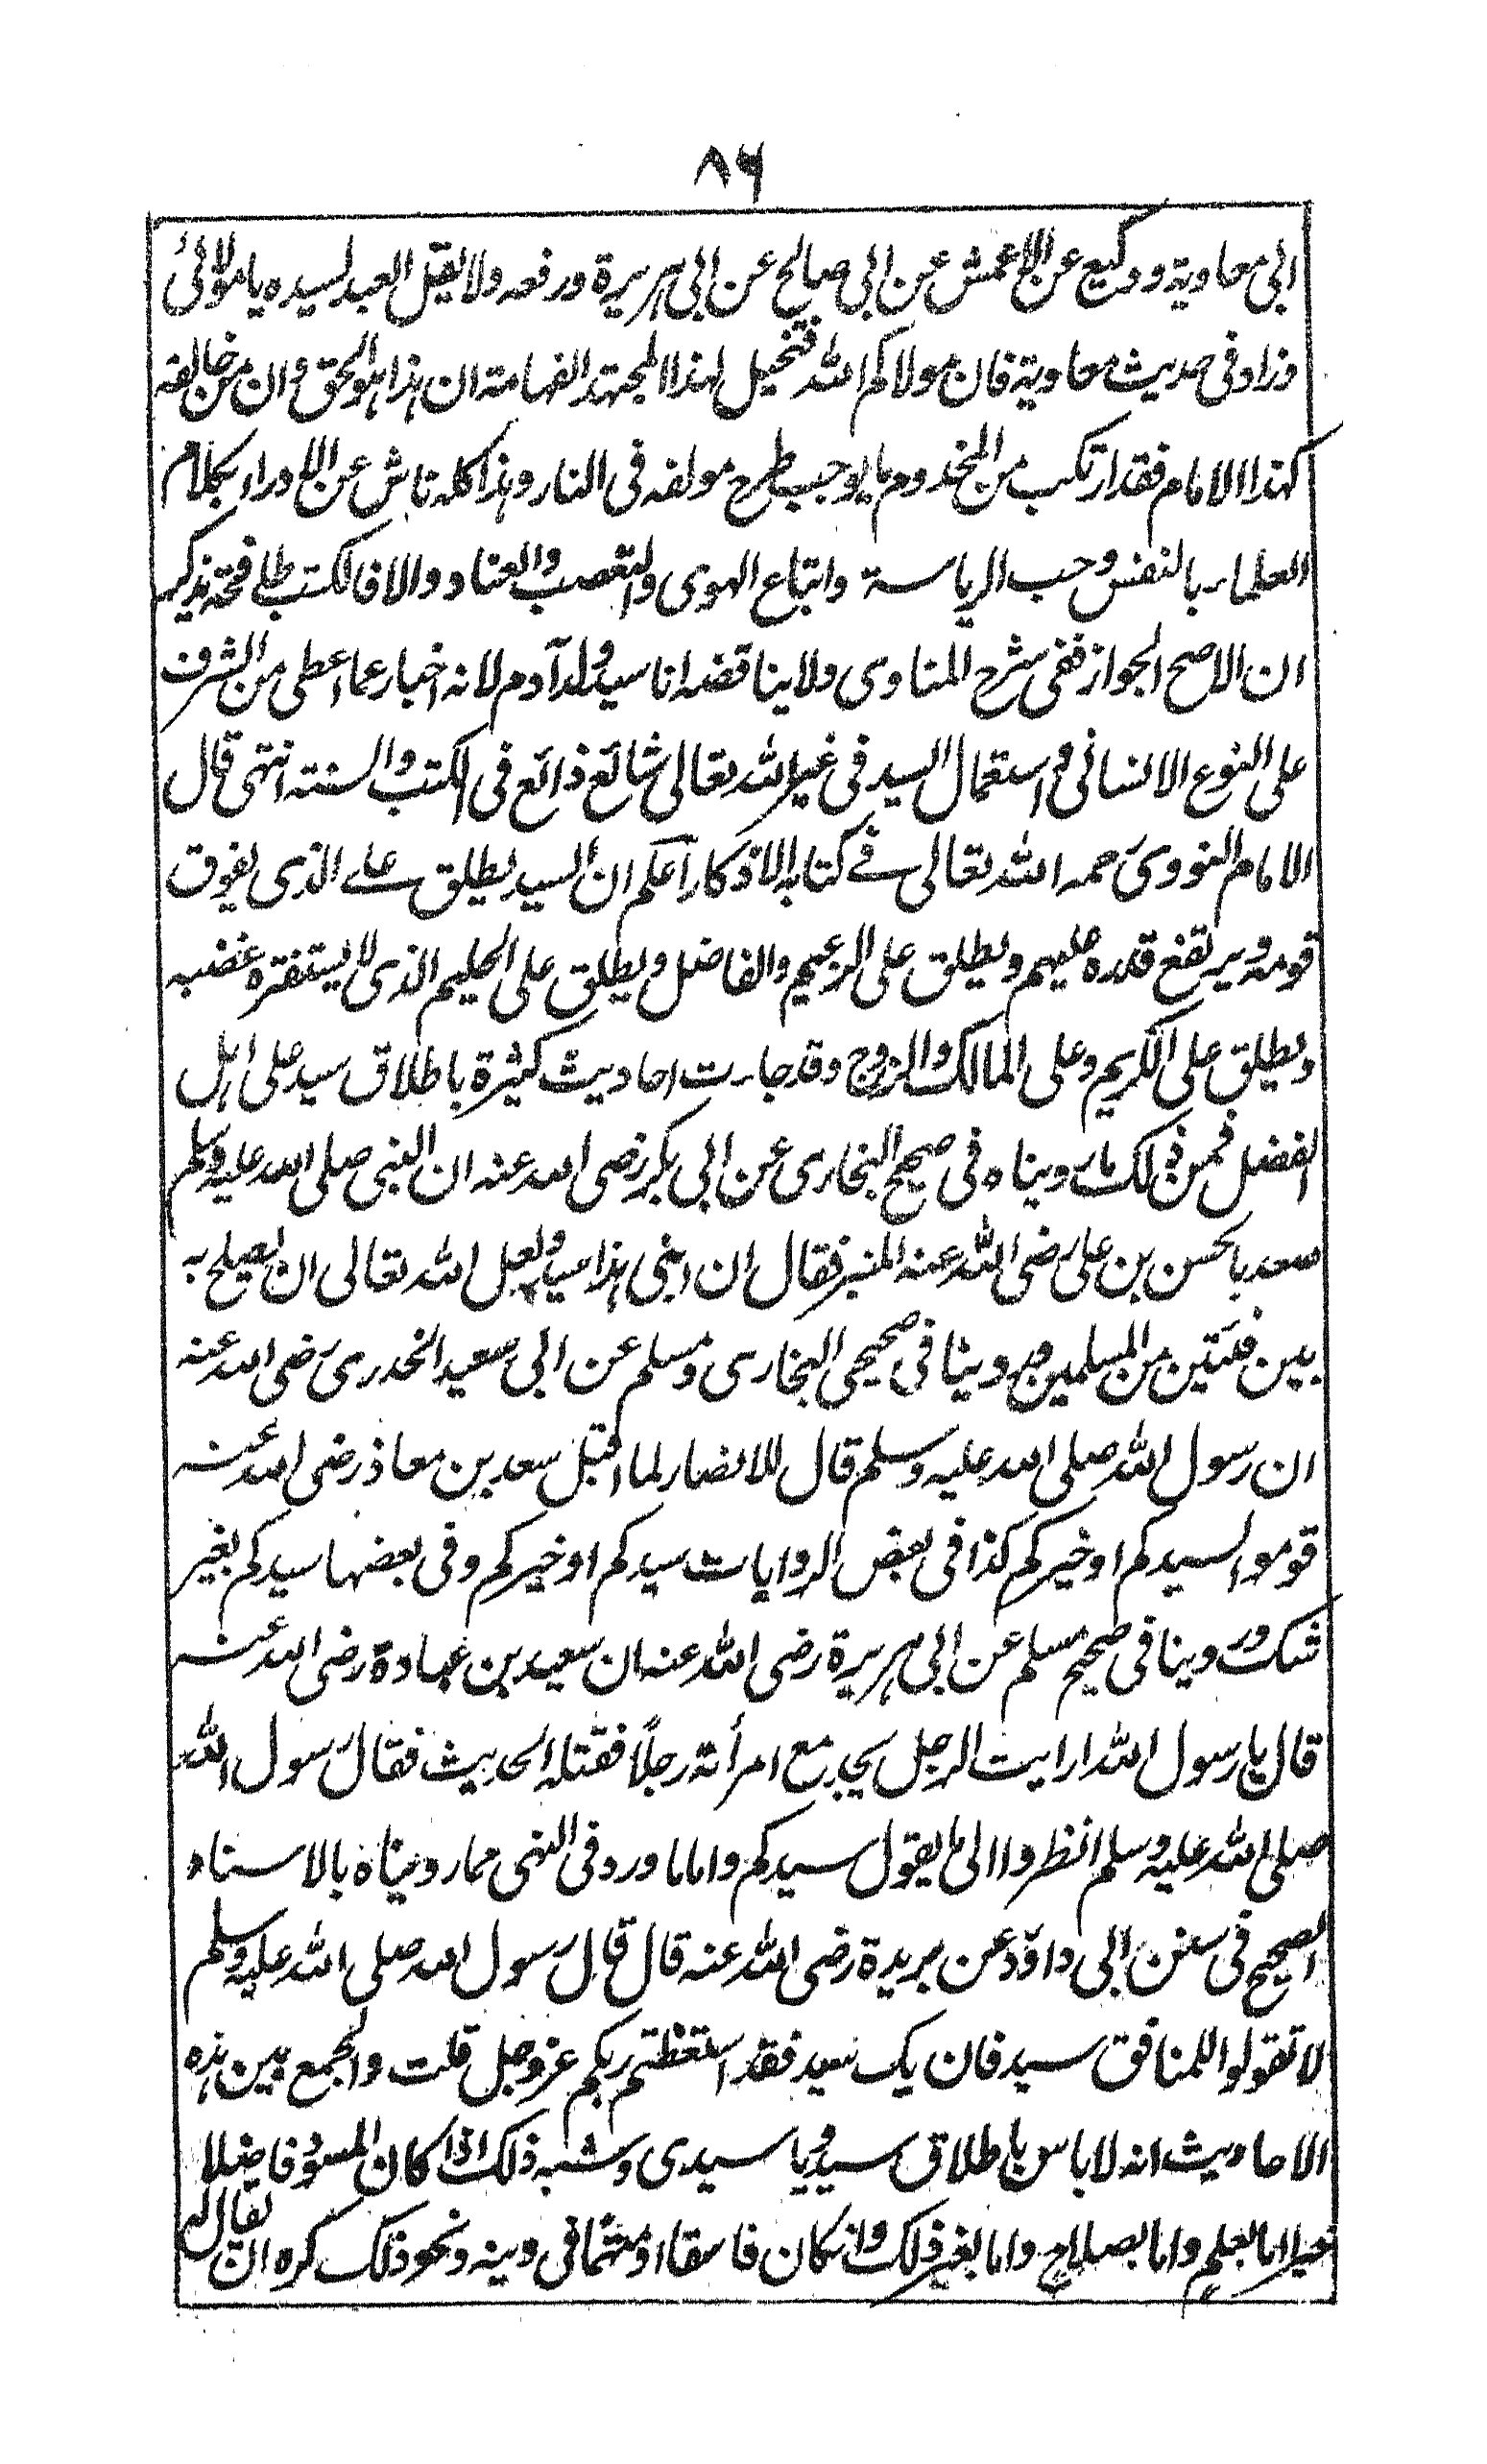 ٨٦
ابی معاوية ووكيع عن الاعمش عن ابی صالح عن ابی هريرة ورفعه ولا يقل العبد لسيده يا مولائی
وزاد فی حديث معاوية فان مولاكم الله فتخيل لهذا المجتهد الفهامة ان هذا هو الحق وان من خالفه
كهذا الامام فقد ارتكب من المخدوم ما يوجب طرح مولفه فی النار وهذا كله ناش عن الازدراء بكلام
العلماء بالنفس وحب الرياسة واتباع الهوى والتعصب والعناد والا فالكتب طافحة بذكر
ان الاصح الجواز ففی شرح المناوی ولا يناقضه انا سيد ولد آدم لانه اخبار عما اعطی من الشرف
علی النوع الانسانی واستعمال السيد فی غير الله تعالی شائع ذائع فی الكتب والسنة انتهی قال
الامام النووی رحمه الله تعالی فی كتابه الاذكار اعلم ان السيد يطلق علی الذی يفوق
قومه ويرتفع قدره عليهم ويطلق علی الزعيم والفاضل ويطلق علی الحليم الذی لا يستفزه غضبه
ويطلق علی الكريم وعلی المالك والزوج وقد جاءت احاديث كثيرة باطلاق سيد علی اهل
الفضل فمن ذلك ما رويناه فی صحيح البخاری عن ابی بكر رضی الله عنه ان النبی صلی الله عليه وسلم
صعد بالحسن بن علی رضی الله عنه المنبر فقال ان ابنی هذا سيد ولعل الله تعالی ان يصلح به
بين فئتين من المسلمين وروينا فی صحيحی البخاری ومسلم عن ابی سعيد الخدری رضی الله عنه
ان رسول الله صلی الله عليه وسلم قال للانصار لما اقبل سعد بن معاذ رضی الله عنه
قوموا لسيدكم او خيركم كذا فی بعض الروايات سيدكم او خيركم وفی بعضها سيدكم بغير
شك وروينا فی صحيح مسلم عن ابی هريرة رضی الله عنه ان سعيد بن عبادة رضی الله عنه
قال يا رسول الله ارايت الرجل يجد مع امرأته رجلاً فقتله الحديث فقال رسول الله
صلی الله عليه وسلم انظروا الی ما يقول سيدكم واما ما ورد فی النهی مما رويناه بالاسناد
الصحيح فی سنن ابی داؤد عن بريدة رضی الله عنه قال قال رسول الله صلی الله عليه وسلم
لا تقولوا للمنافق سيد فان يك سيد فقد استغظتم ربكم عز وجل قلت والجمع بين هذه
الاحاديث انه لا باس باطلاق سيد ويا سيدی وشبه ذلك اذا كان المسود فاضلا
خيرا اما بعلم واما بصلاح واما بغير ذلك وان كان فاسقا او متهما فی دينه ونحو ذلك كره ان يقال له